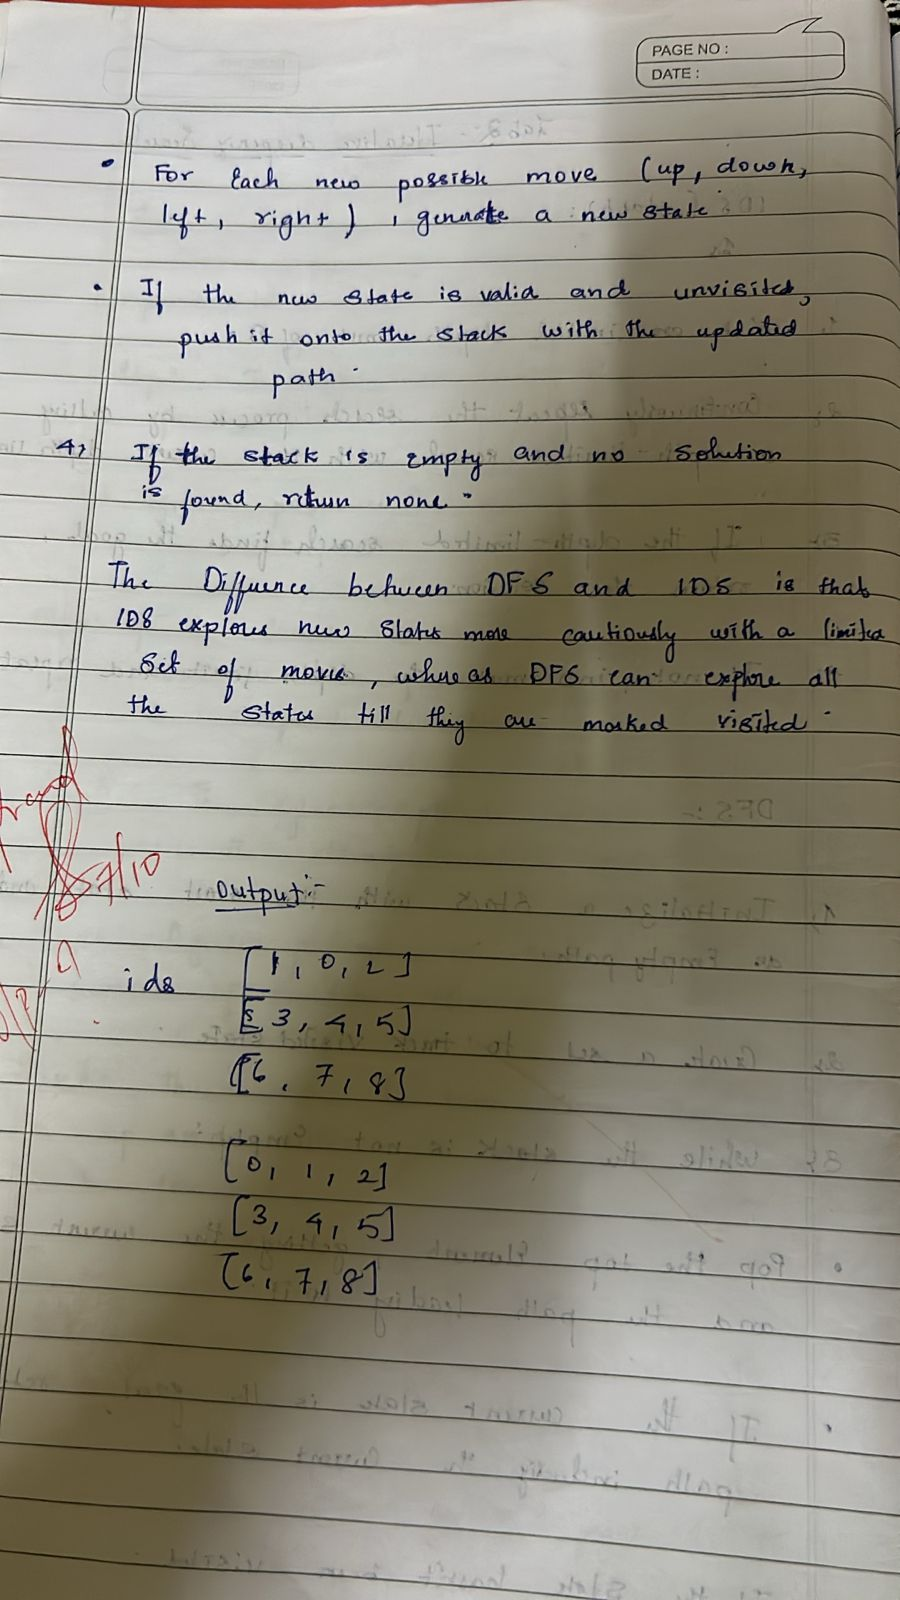 PAGE NO :
DATE :
• For Each new possible move (up, down,
left, right) , generate a new state
• If the new state is valid and unvisited,
push it onto the stack with the updated
path.
4, If the stack is empty and no solution
is found, return none.
The Diffuence between DFS and IDS is that
IDS explores new States more cautiously with a limited
Set of moves, where as DFS can explore all
the states till they are marked visited.
7/10
Output :-
ids [1, 0, 2]
[3, 4, 5]
[6, 7, 8]
[0, 1, 2]
[3, 4, 5]
[6, 7, 8]